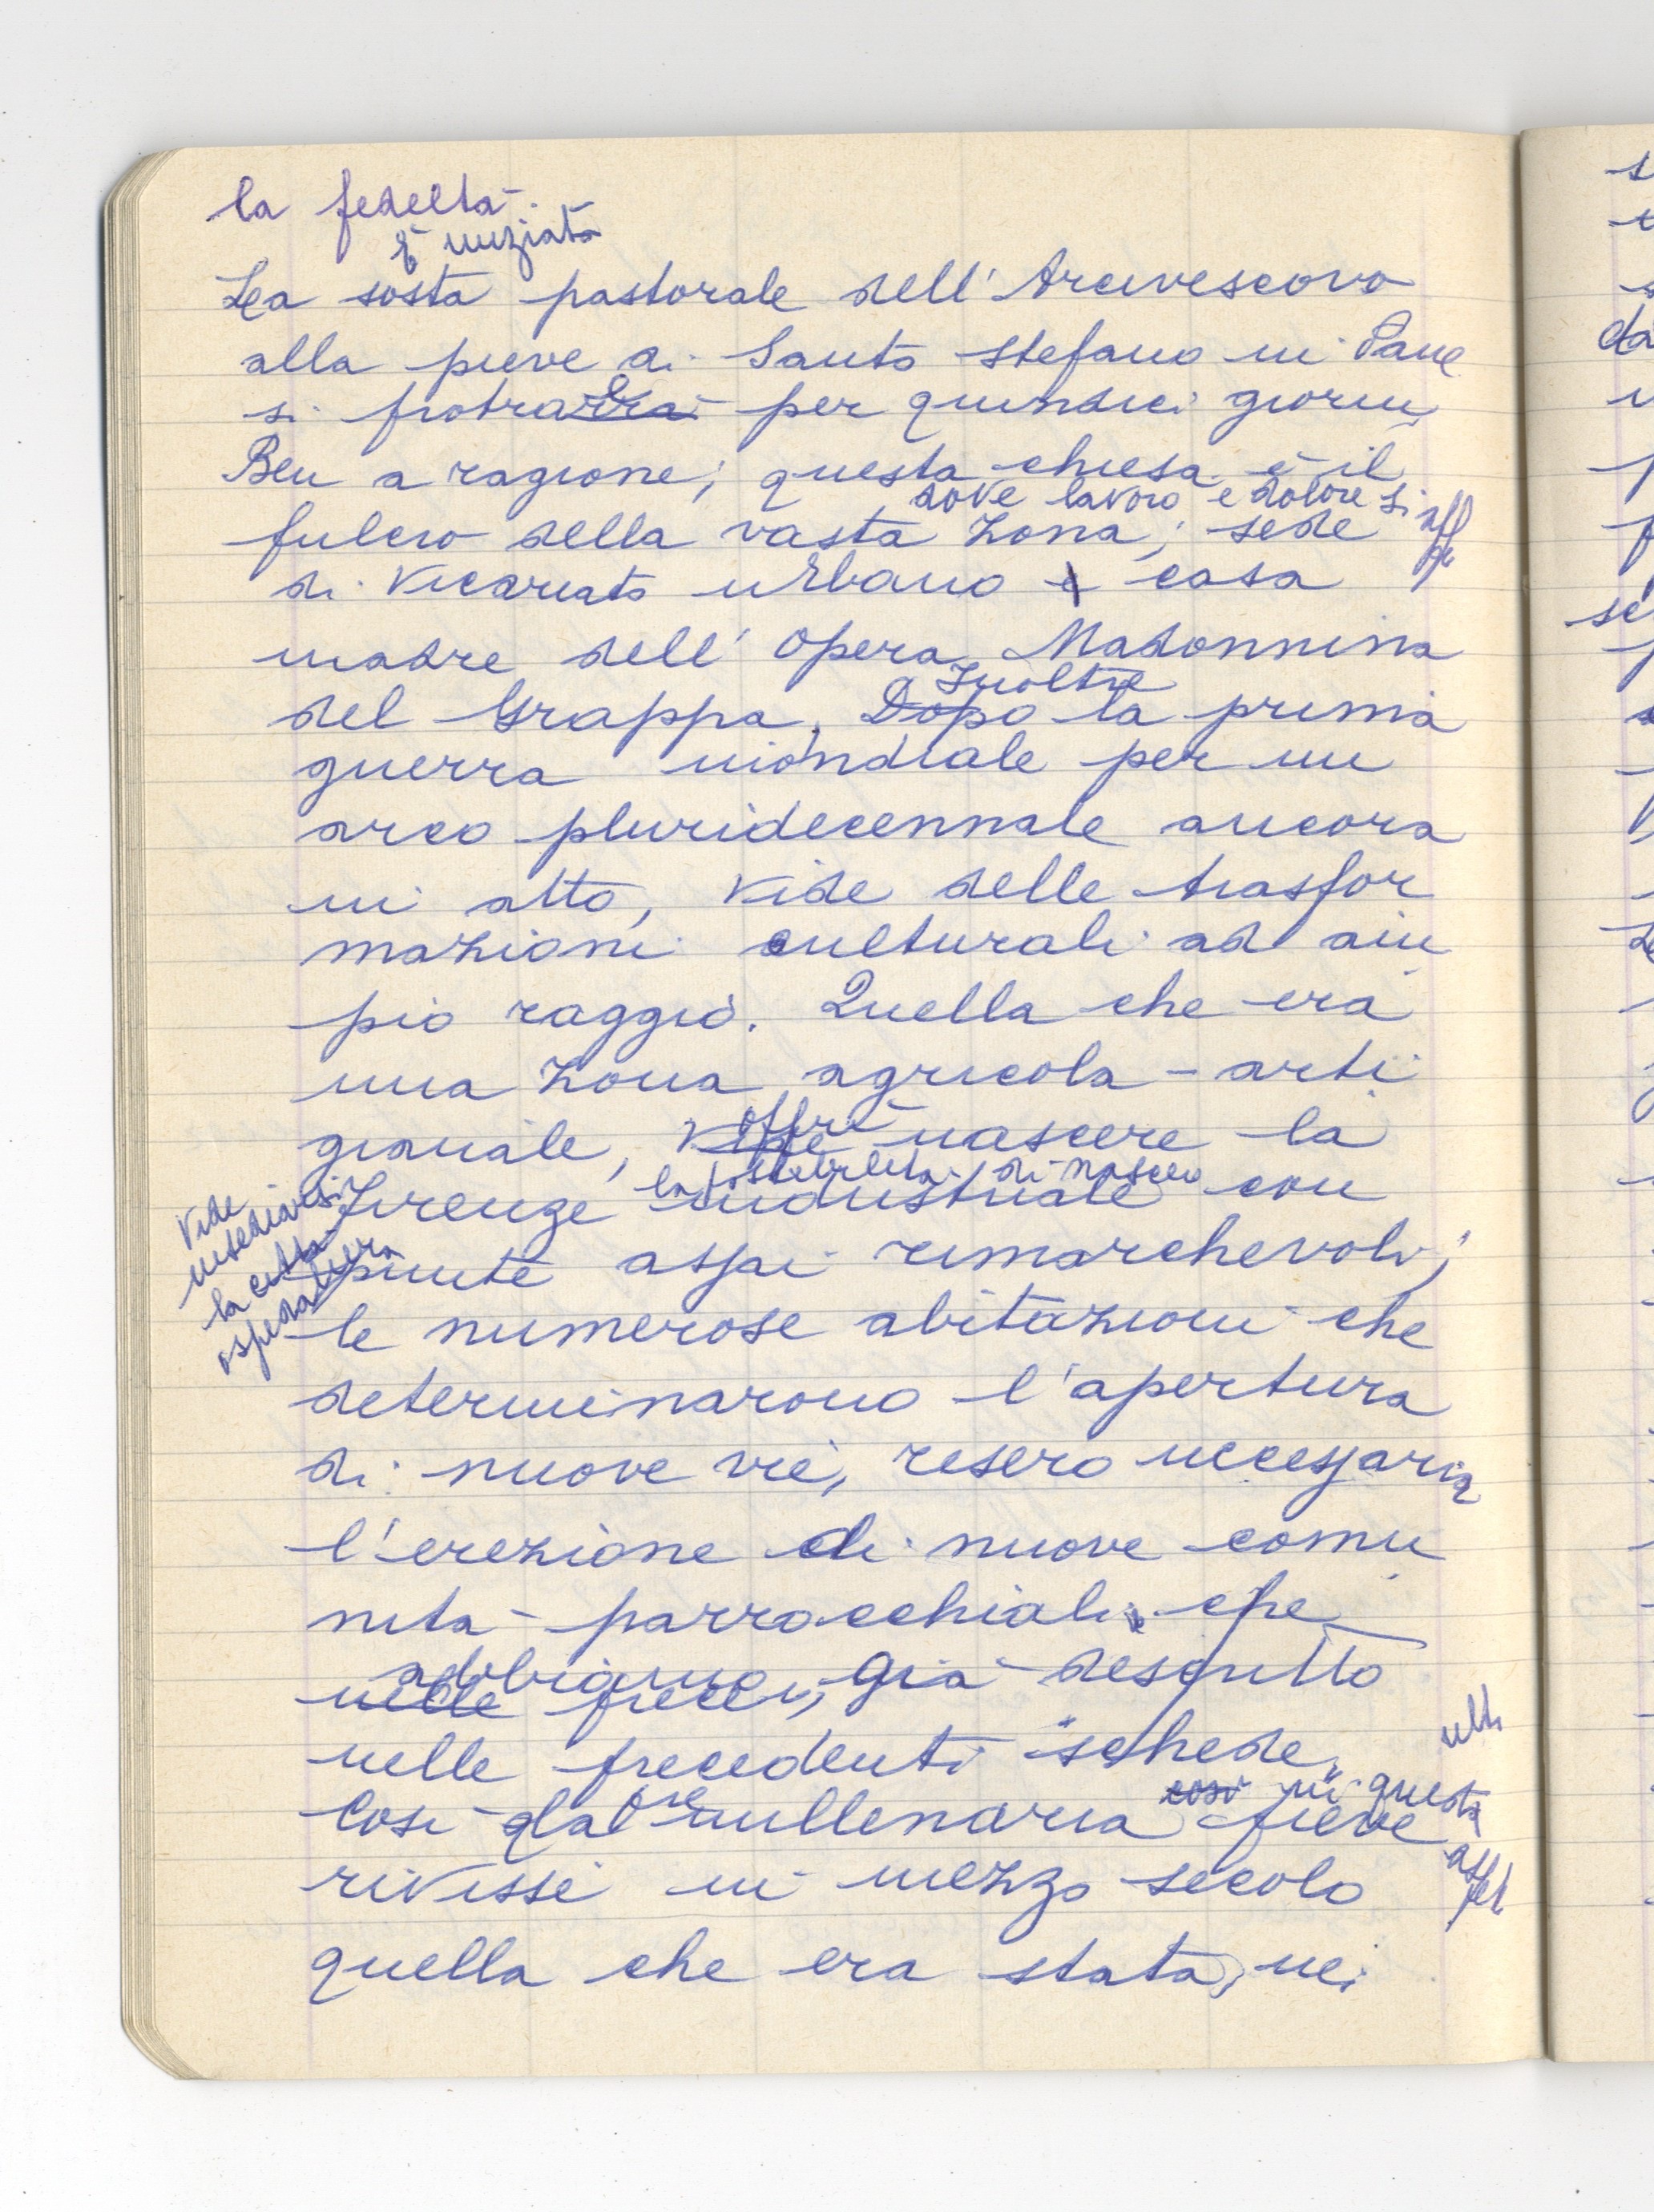 la fedeltà.
È iniziata
La sosta pastorale dell'Arcivescovo
alla pieve di Santo Stefano in Pane
si protrarrà per quindici giorni
Ben a ragione; questa chiesa è il
dove lavoro e dolore si
fulcro della vasta zona; sede
di Vicariato urbano e casa
madre dell'Opera Madonnina
Inoltre
del Grappa. Dopo la prima
guerra mondiale per un
arco pluridecennale ancora
in atto, vide delle trasfor
mazioni culturali ad am
pio raggio. Quella che era
una zona agricola - arti
offrì
gianale, vide nascere la
la possibilità di nascere
Firenze industriale con
Vide
insediarsi
la città
ospedaliera
punte assai rimarchevoli;
le numerose abitazioni che
determinarono l'apertura
di nuove vie, resero necessaria
l'erezione di nuove comu
nità parrocchiali che
abbiamo già descritto
nelle
nelle precedenti "schede"
così in questa
Così millenaria pieve
rivisse in mezzo secolo
quella che era stata, nei